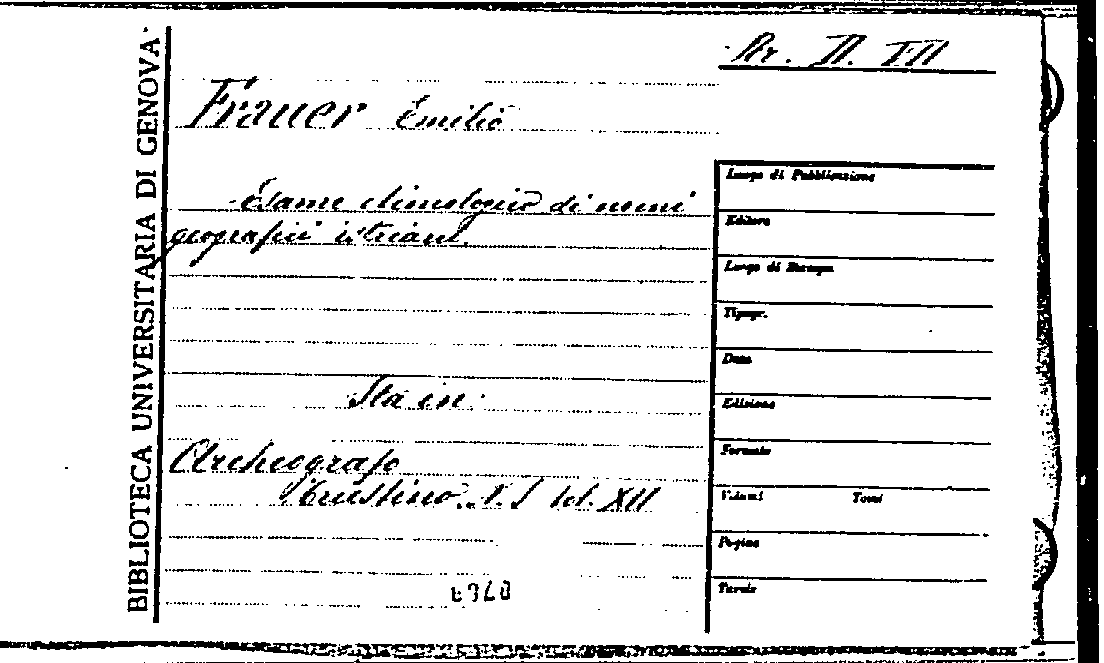 BIBLIOTECA UNIVERSITARIA DI GENOVA
Frauer Emilio
Esame etimologico di nomi
geografici istriani.
Sta in:
Archeografo
Triestino. N. S. Vol. XII
Luogo di Pubblicazione
Editore
Luogo di Stampa
Tipogr.
Data
Edizione
Formato
Volumi Tomi
Pagine
Tavole